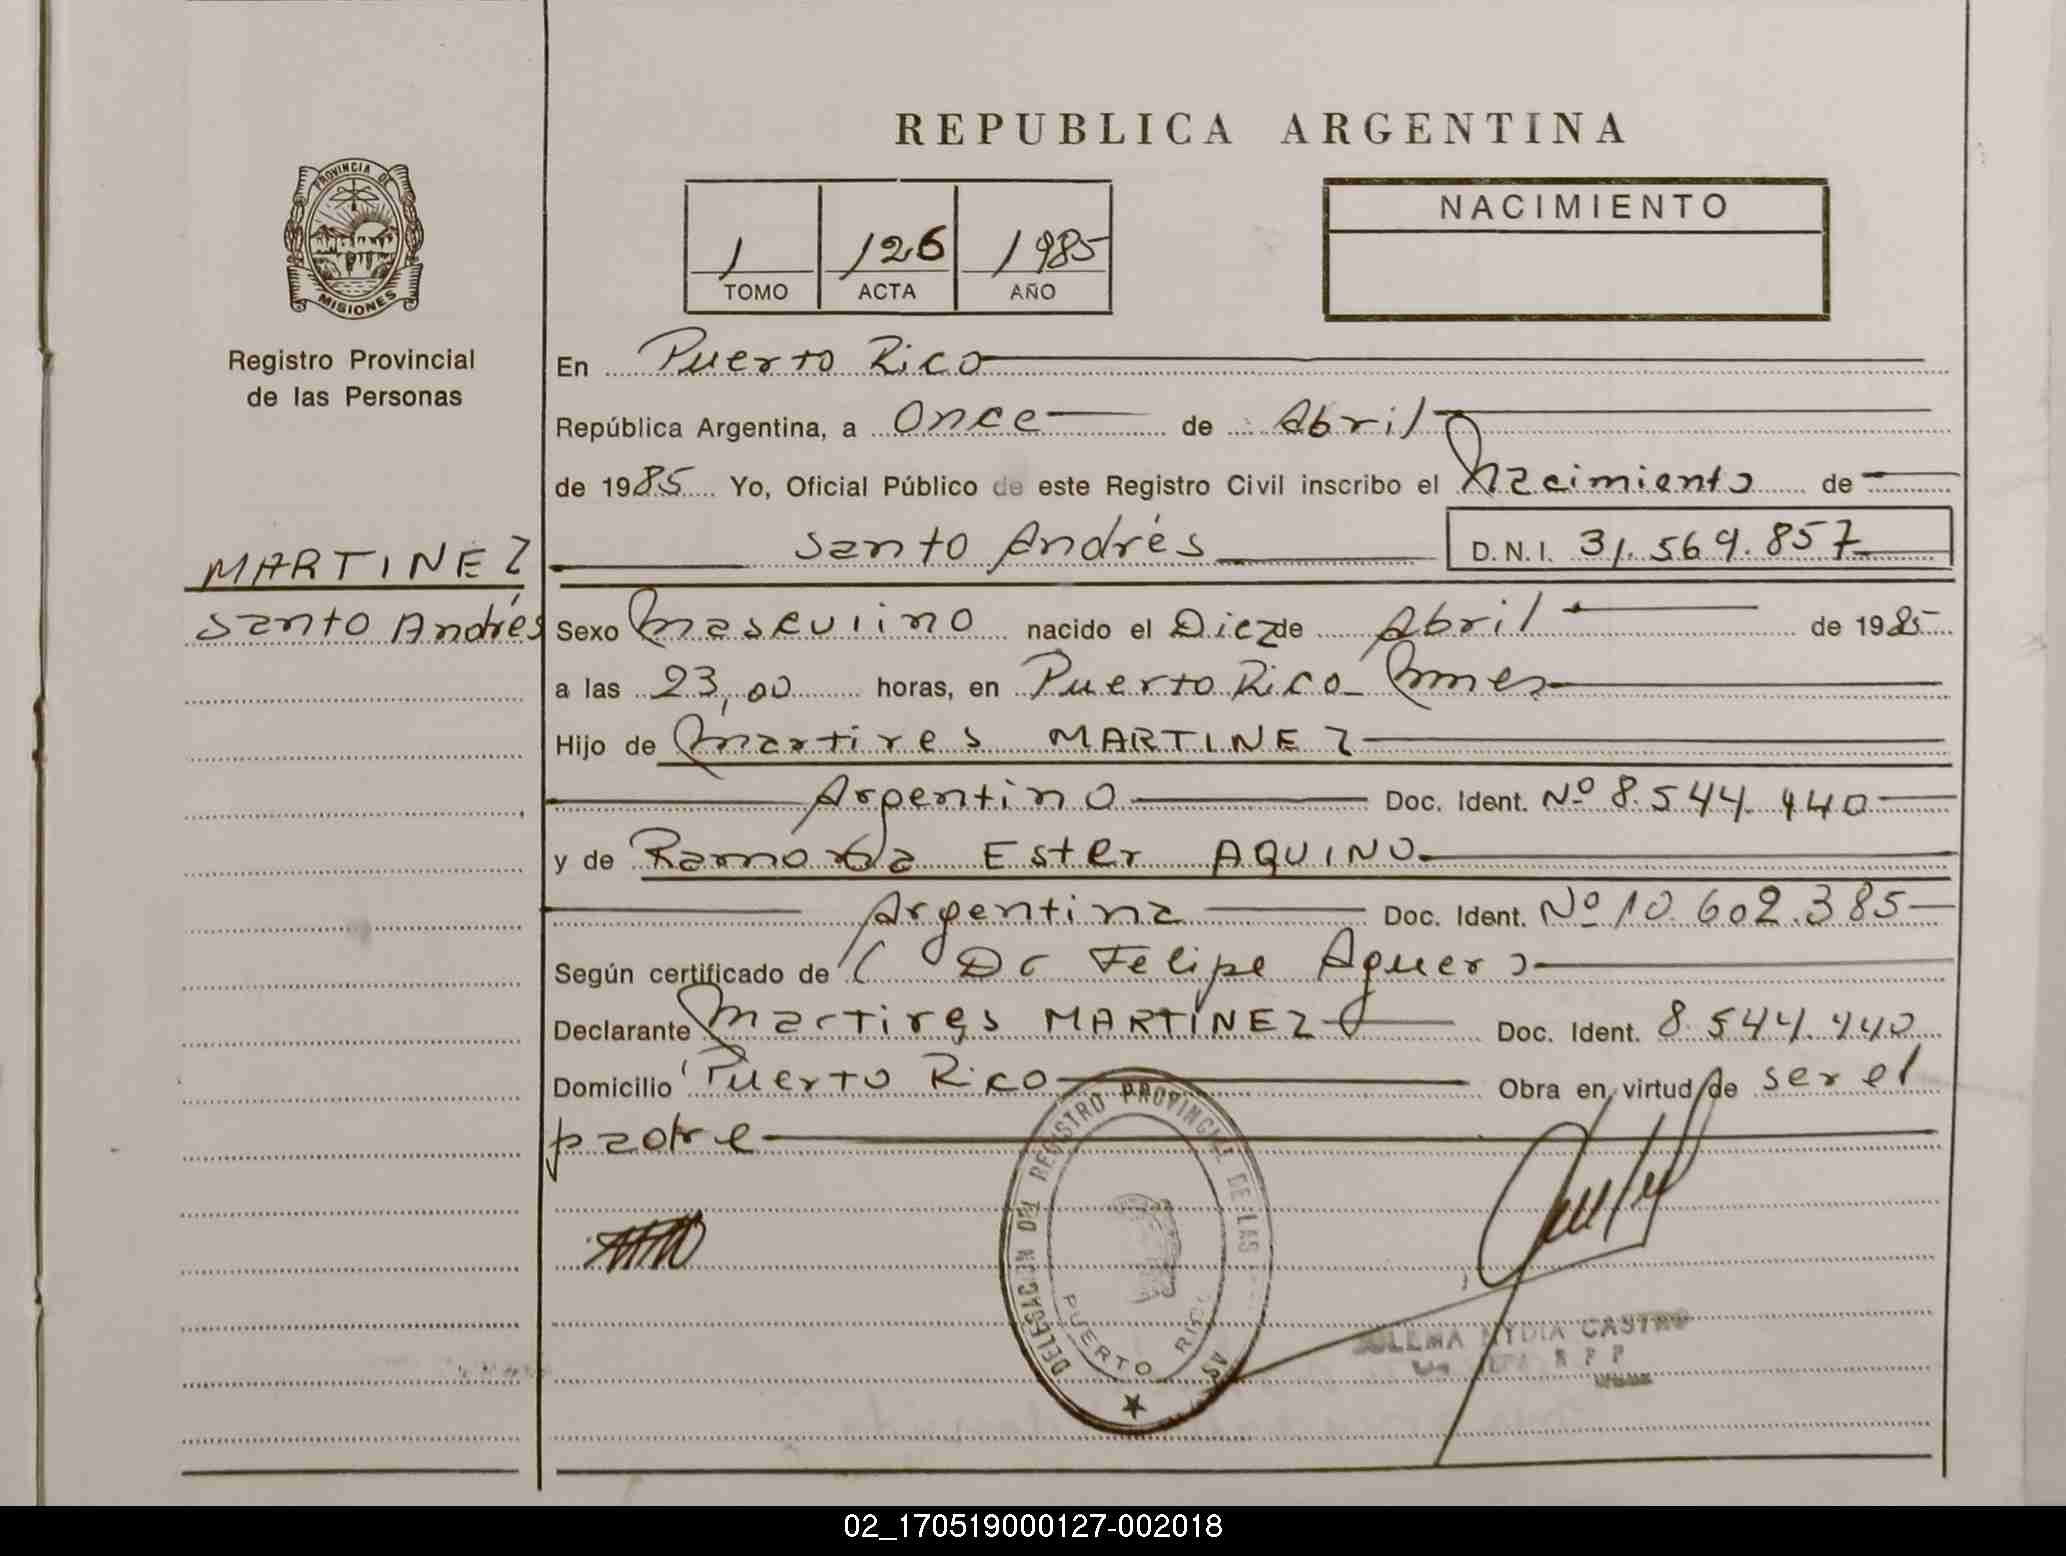 REPUBLICA ARGENTINA
PROVINCIA DE
MISIONES
Registro Provincial
de las Personas
1 126 1985
TOMO ACTA AÑO
NACIMIENTO
En Puerto Rico
República Argentina, a Once de Abril
de 1985 Yo, Oficial Público de este Registro Civil inscribo el Nacimiento de
MARTINEZ
Santo Andrés
Santo Andrés D.N.I. 31.569.857
Sexo Masculino nacido el Diez de Abril de 1985
a las 23,00 horas, en Puerto Rico Mnes
Hijo de Martires MARTINEZ
Argentino Doc. Ident. Nº 8.544.440
y de Ramona Ester AQUINO
Argentina Doc. Ident. Nº 10.602.385
Según certificado de Dr Felipe Aguero
Declarante Martires MARTINEZ Doc. Ident. 8.544.440
Domicilio Puerto Rico Obra en virtud de ser el
padre
DELEGACION DEL REGISTRO PROVINCIAL DE LAS
PUERTO RICO
NYDIA CASTRO
02_170519000127-002018